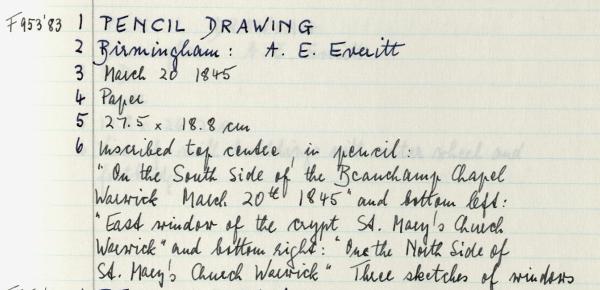 F953'83 1 PENCIL DRAWING
2 Birmingham: A. E. Everitt
3 March 20 1845
4 Paper
5 27.5 x 18.8 cm
6 Inscribed top centre, in pencil:
"On the South Side of the Beauchamp Chapel
Warwick March 20th 1845" and bottom left:
"East window of the crypt St. Mary's Church
Warwick" and bottom right: "One the North Side of
St. Mary's Church Warwick" Three sketches of windows